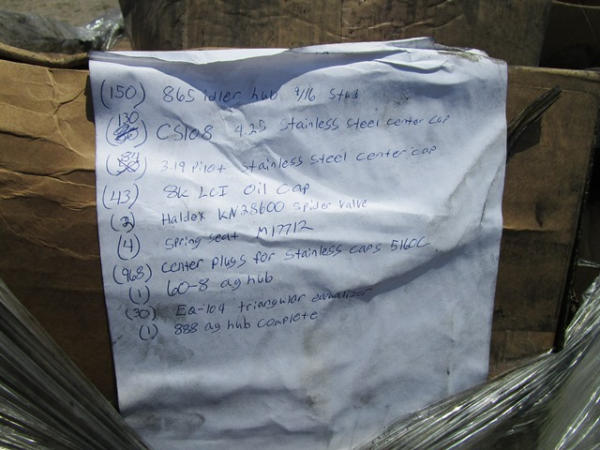 (150) 865 idler hub 9/16 stud
130 (80) CS108 4.25 Stainless Steel center cap
84 3.19 Pilot Stainless Steel center cap
(43) 8k LCI Oil Cap
(2) Haldex KN28600 Spider valve
(4) Spring seat M17712
(968) Center plugs for stainless caps 5160C
(1) 60-8 ag hub
(30) EQ-104 triangular equalizer
(1) 888 ag hub complete